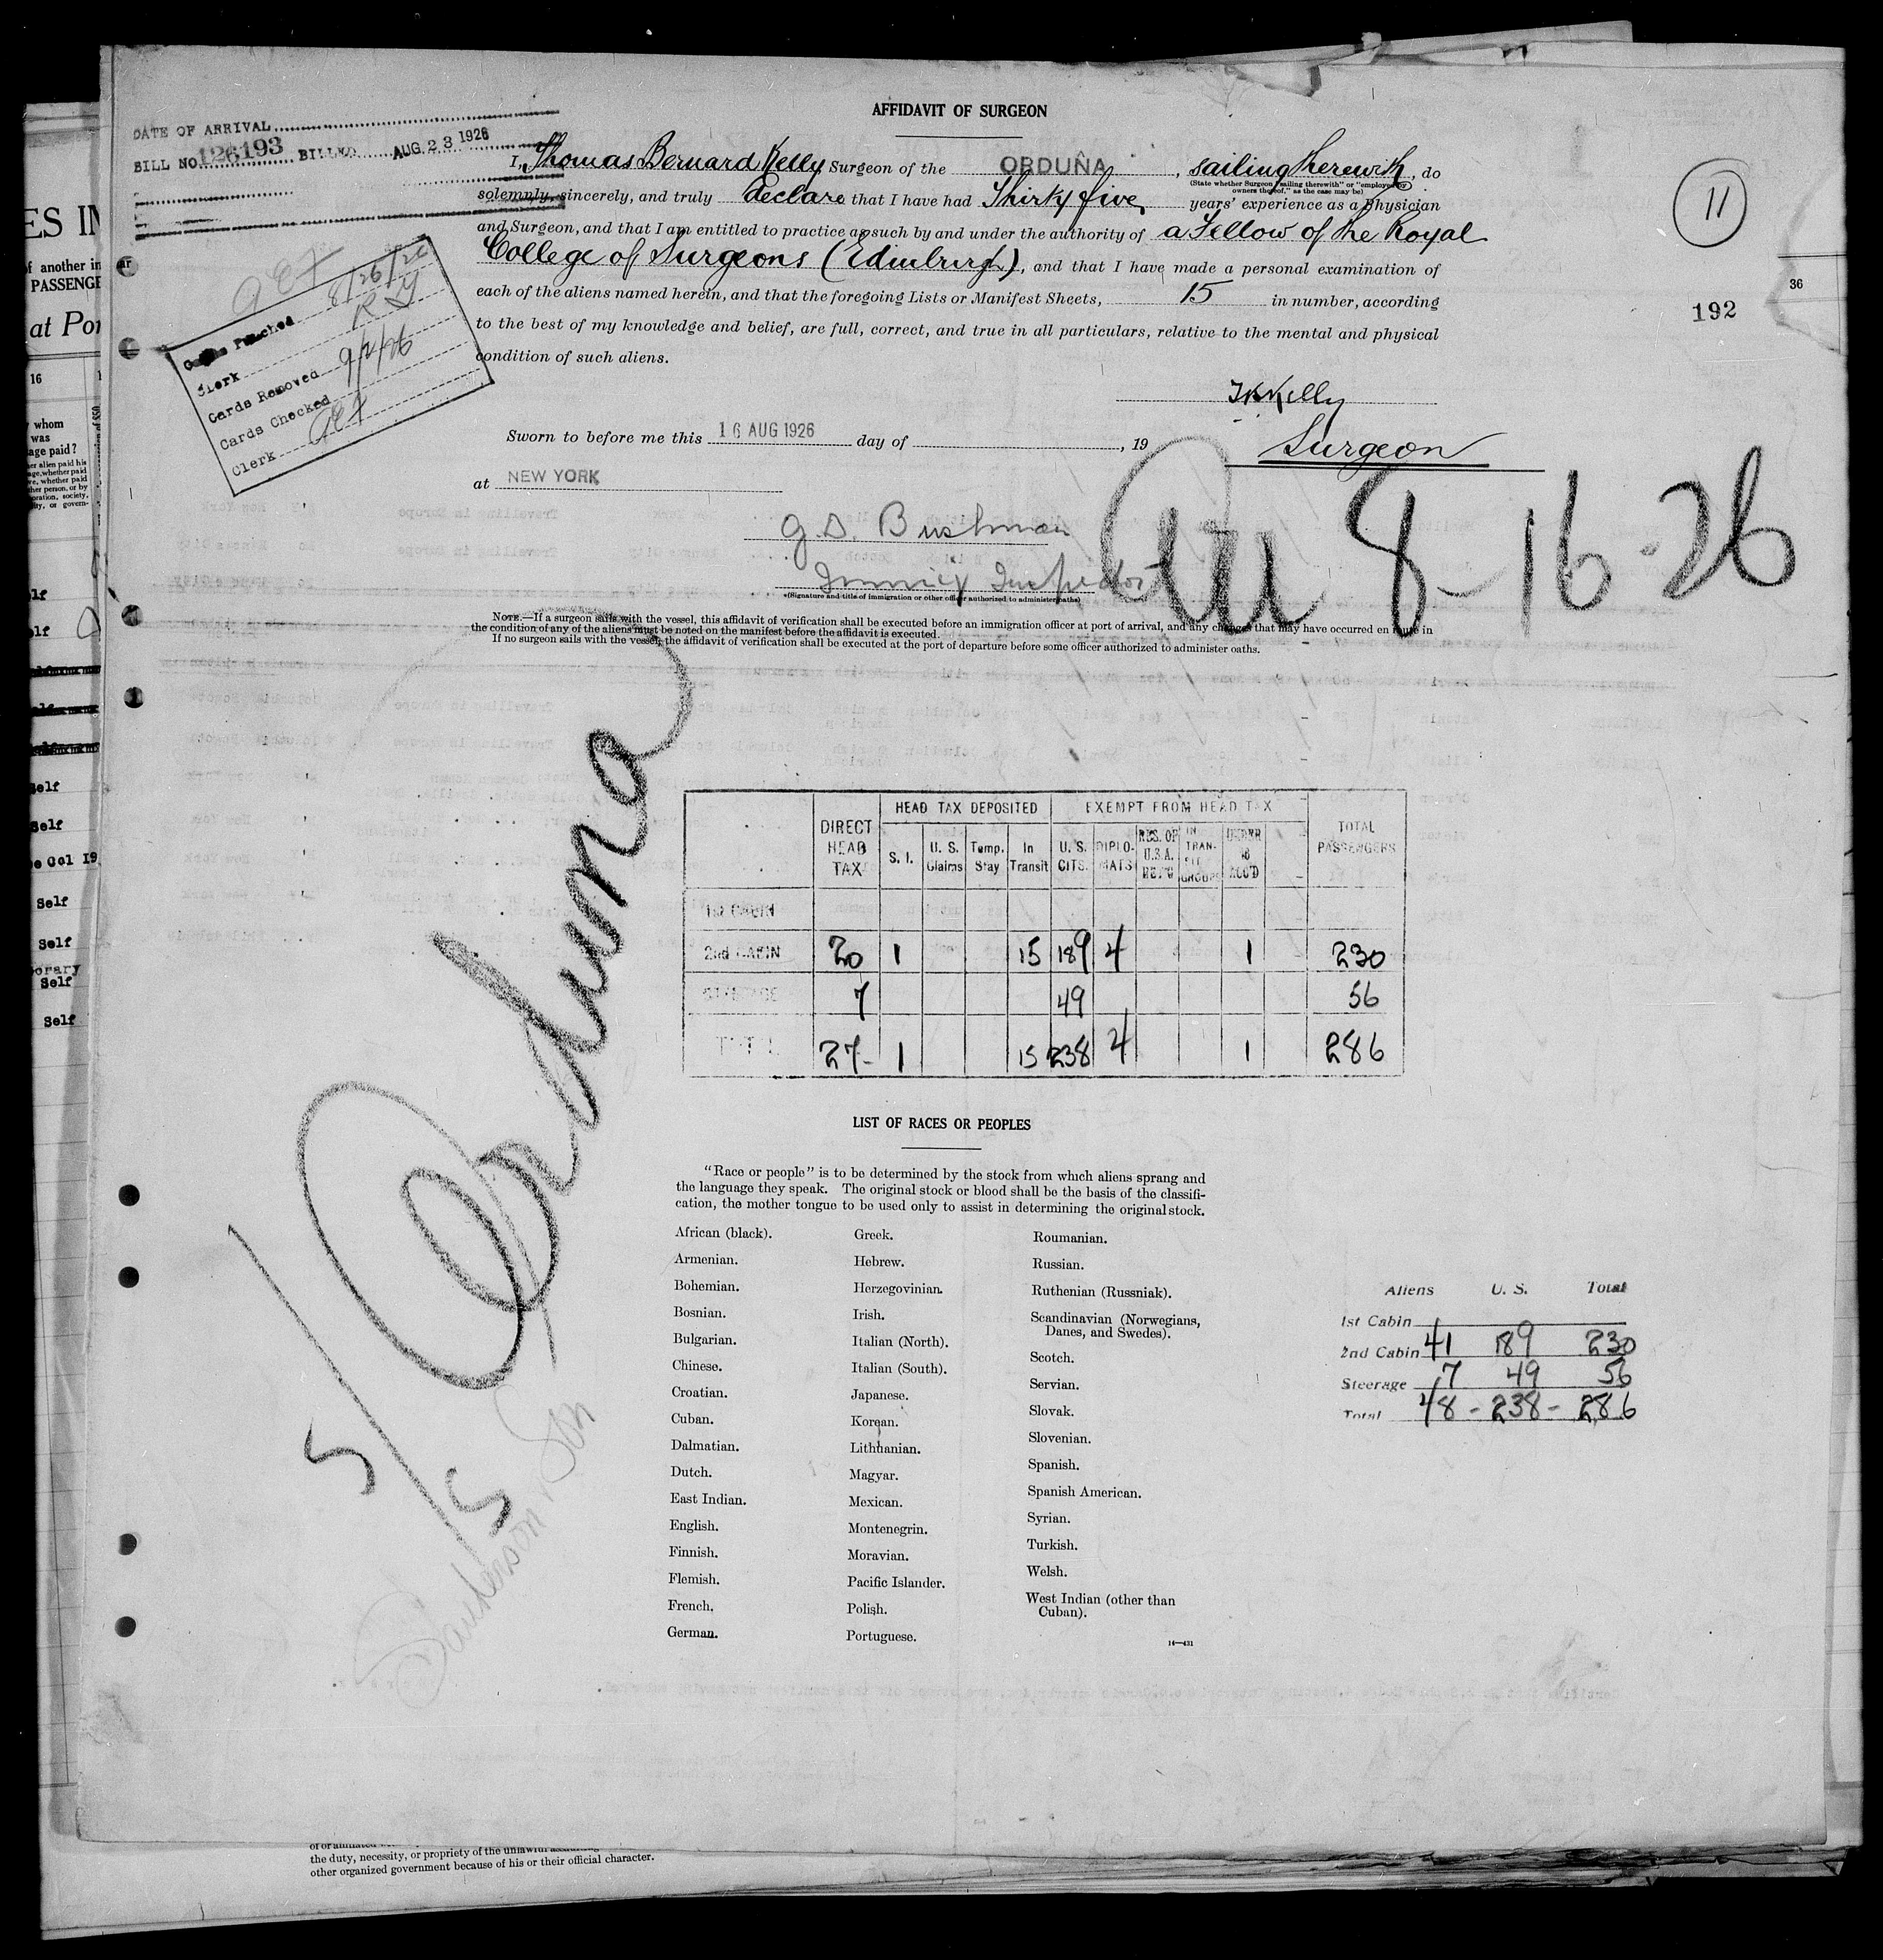 AFFIDAVIT OF SURGEON
DATE OF ARRIVAL
BILL NO. 126193 BILLED AUG 23 1926
I, Thomas Bernard Kelly Surgeon of the ORDUÑA, sailing therewith, do
(State whether Surgeon "sailing therewith" or "employed by owners thereof," as the case may be)
solemnly, sincerely, and truly declare that I have had Thirty five years' experience as a Physician
and Surgeon, and that I am entitled to practice as such by and under the authority of a Fellow of the Royal
College of Surgeons (Edinburgh), and that I have made a personal examination of
each of the aliens named herein, and that the foregoing Lists or Manifest Sheets, 15 in number, according
to the best of my knowledge and belief, are full, correct, and true in all particulars, relative to the mental and physical
condition of such aliens.
11
36
192
Punched 8/26/26
Clerk
Cards Removed 9/2/26
Cards Checked
Clerk
TB Kelly
Surgeon
Sworn to before me this 16 AUG 1926 day of , 19
at NEW YORK
G.D. Bushman
Immig Inspector
(Signature and title of immigration or other officer authorized to administer oaths)
8-16-26
NOTE.—If a surgeon sails with the vessel, this affidavit of verification shall be executed before an immigration officer at port of arrival, and any changes that may have occurred en route in
the condition of any of the aliens must be noted on the manifest before the affidavit is executed.
If no surgeon sails with the vessel, the affidavit of verification shall be executed at the port of departure before some officer authorized to administer oaths.
Orduna
5/15
Sanderson & Son
DIRECT HEAD TAX HEAD TAX DEPOSITED EXEMPT FROM HEAD TAX TOTAL PASSENGERS
S. I. U. S. Claims Temp. Stay In Transit U. S. CITS. DIPLOMATS RES. OF U.S.A. RET'G IN TRANSIT GROUPS UNDER 16 ACC'D
1st CABIN
2nd CABIN 20 1 15 189 4 1 230
STEERAGE 7 49 56
TOTAL 27- 1 15 238 4 1 286
LIST OF RACES OR PEOPLES
"Race or people" is to be determined by the stock from which aliens sprang and
the language they speak. The original stock or blood shall be the basis of the classifi-
cation, the mother tongue to be used only to assist in determining the original stock.
African (black).
Armenian.
Bohemian.
Bosnian.
Bulgarian.
Chinese.
Croatian.
Cuban.
Dalmatian.
Dutch.
East Indian.
English.
Finnish.
Flemish.
French.
German.
Greek.
Hebrew.
Herzegovinian.
Irish.
Italian (North).
Italian (South).
Japanese.
Korean.
Lithuanian.
Magyar.
Mexican.
Montenegrin.
Moravian.
Pacific Islander.
Polish.
Portuguese.
Roumanian.
Russian.
Ruthenian (Russniak).
Scandinavian (Norwegians,
Danes, and Swedes).
Scotch.
Servian.
Slovak.
Slovenian.
Spanish.
Spanish American.
Syrian.
Turkish.
Welsh.
West Indian (other than
Cuban).
14—431
Aliens U. S. Total
1st Cabin
2nd Cabin 41 189 230
Steerage 7 49 56
Total 48 - 238 - 286
the duty, necessity, or propriety of the unlawful
other organized government because of his or their official character.
of another in
PASSENGE
at Por
16
whom
was
age paid?
Self
Self
Self
Self
Self
Self